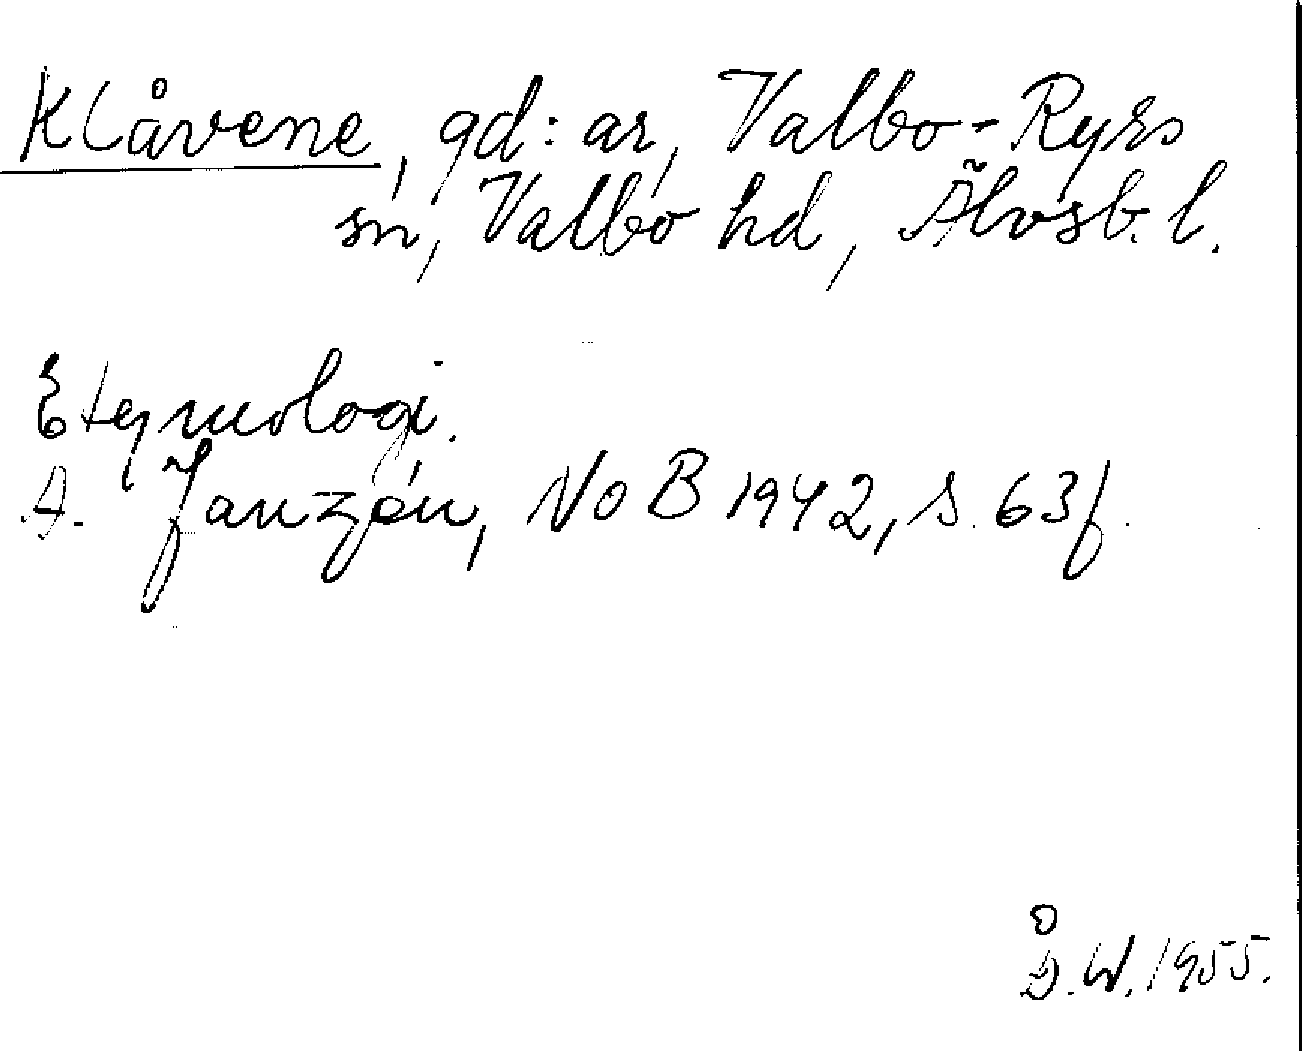 Klåvene, gd:ar, Valbo-Ryrs
sn, Valbo hd, Älvsb. l.
Etymologi.
A. Janzén, NoB 1942, s. 63f.
Å.W. 1955.